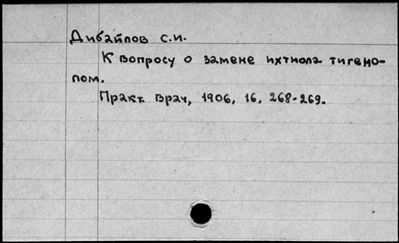 Дибайлов С.И.
К вопросу о замене ихтиола тигено-
лом.
Практ. Врач, 1906, 16, 268-269.